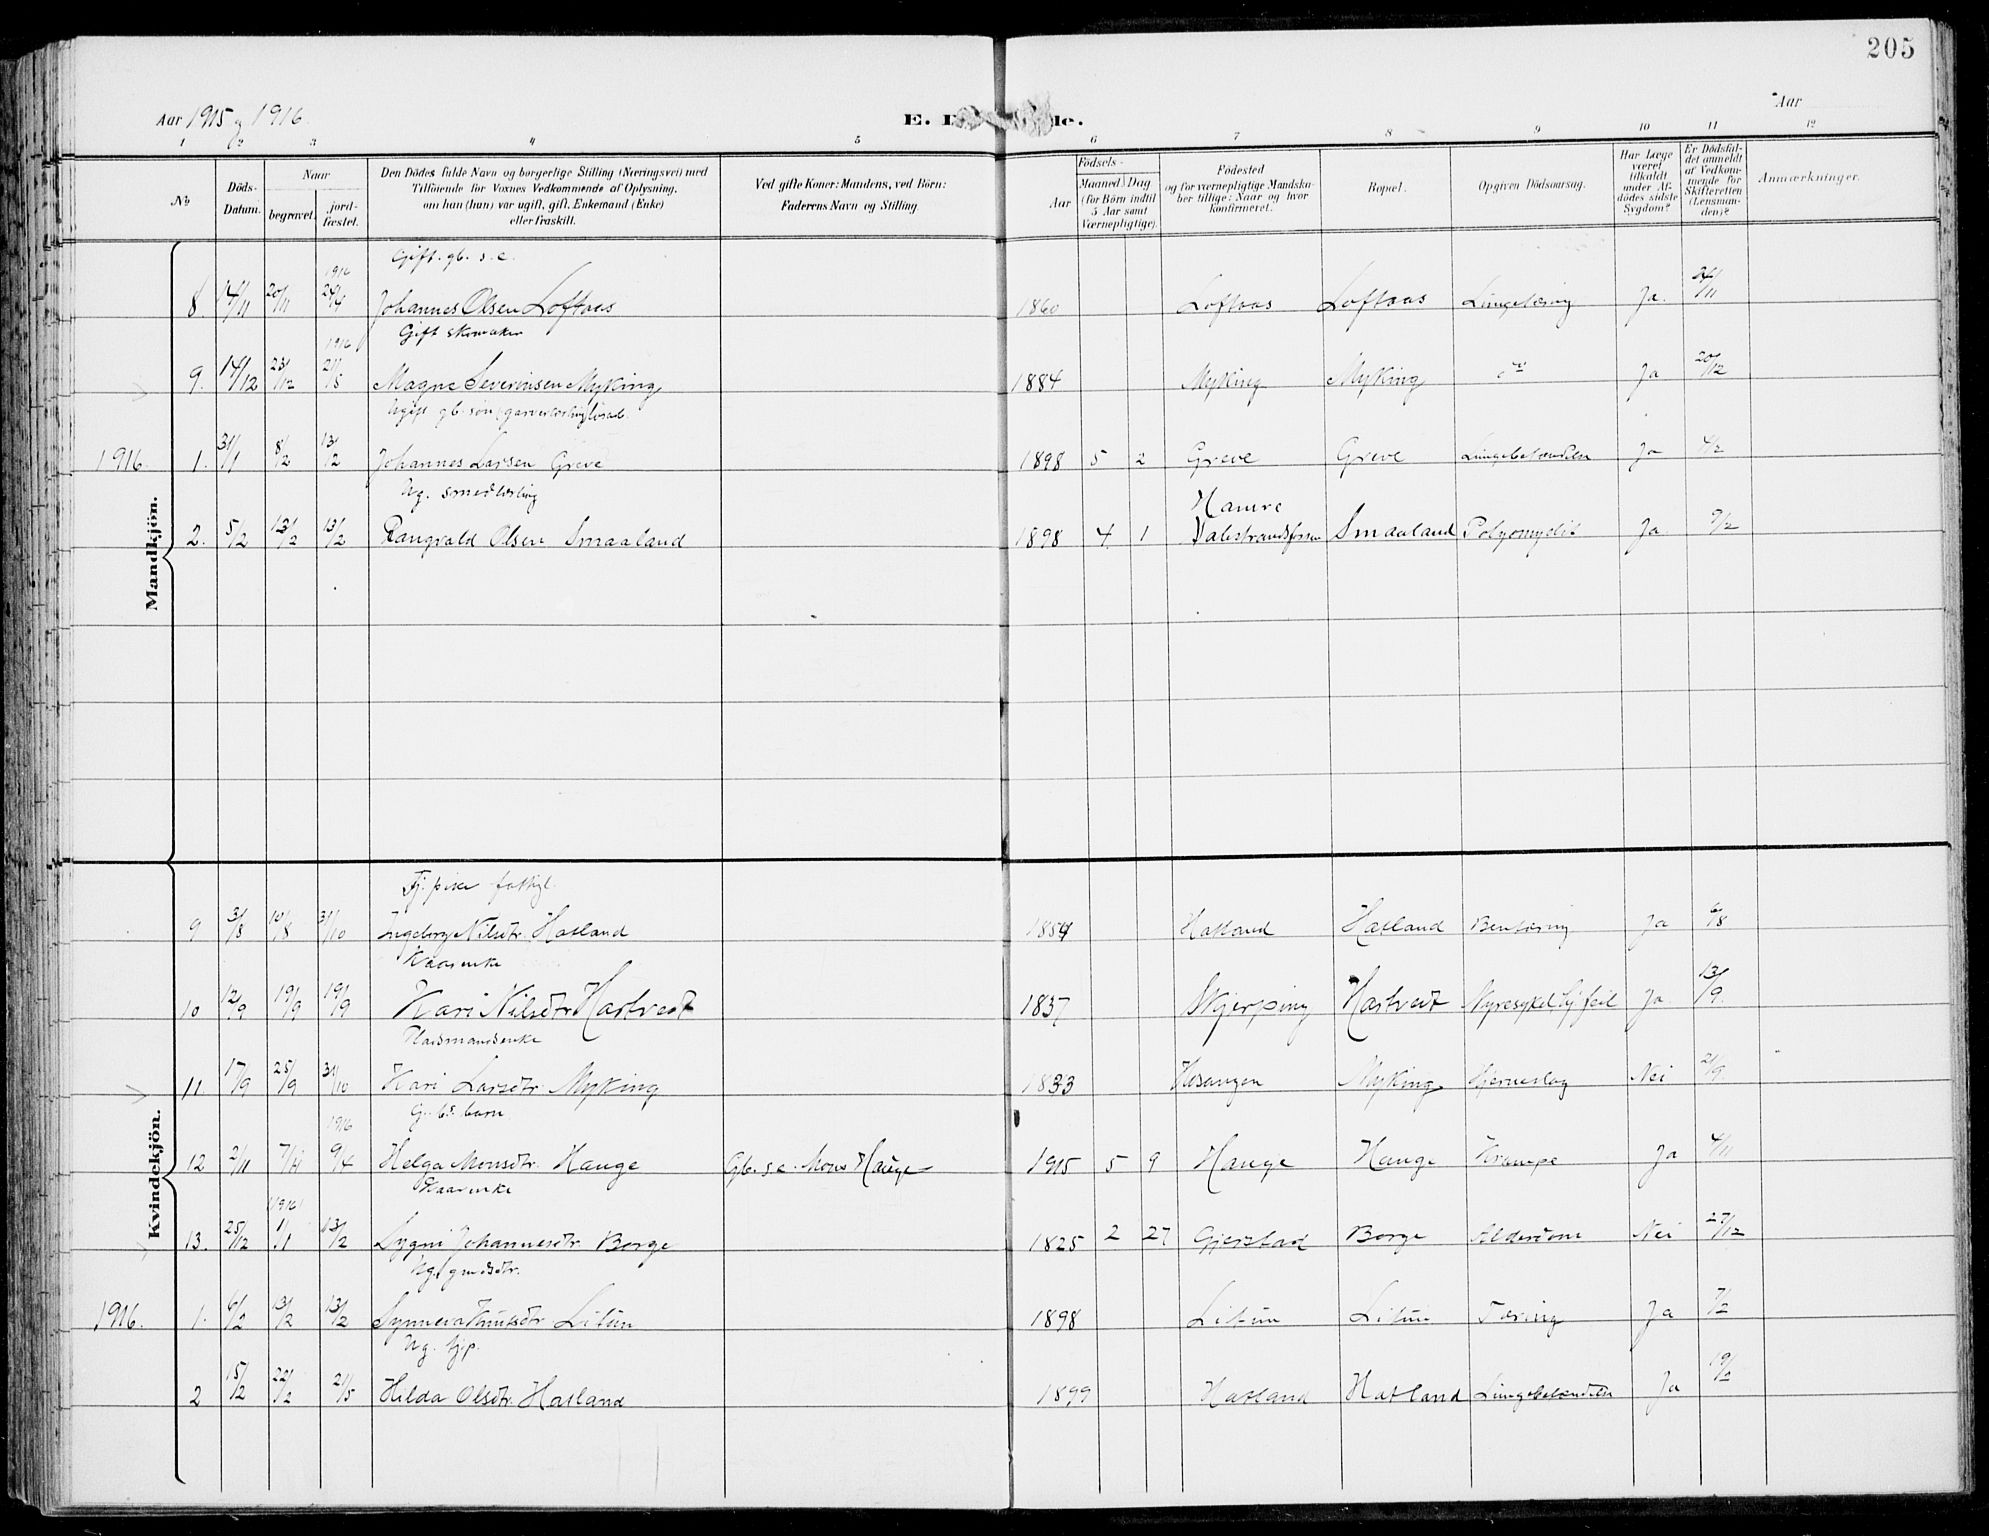 205
Aar 1915 og 1916.
E. D
de.
Aar
1 2 3 4 5 6 7 8 9 10 11 12
No
Döds-Datum.
Naar
begravet.
jord-fæstet.
Den Dödes fulde Navn og borgerlige Stilling (Næringsvei) med
Tilföiende for Voxnes Vedkommende af Oplysning,
om han (hun) var ugift, gift, Enkemand (Enke)
eller fraskilt.
Ved gifte Koner: Mandens, ved Börn:
Faderens Navn og Stilling.
Födsels-
Aar
Maaned. Dag
(for Börn indtil
5 Aar samt
Værnepligtige).
Födested
og for værnepligtige Mandska-
ber tillige: Naar og hvor
konfirmeret.
Bopæl.
Opgiven Dödsaarsag.
Har Læge
været
tilkaldt
under Af-
dödes sidste
Sygdom?
Er Dödsfal-
det anmeldt
af Vedkom-
mende for
Skifteretten
(Lensman-
den)?
Anmærkninger.
Mandkjön.
Gift. gb. s. e.
1916
8. 14/11 20/11 24/4 Johannes Olsen Loftaas 1860 Loftaas Loftaas Lungetæring Ja. 24/11
Gift skomaker
1916
9. 14/12 23/12 21/5 Magne Severinsen Myking 1884 Myking Myking do Ja 20/12
Ugift gb. søn
1916. 1. 31/1 8/2 13/2 Johannes Larsen Greve 1898 5 2 Greve Greve Lungebetændelse Ja 4/2
Ug. smedlærling
Hamre
2. 5/2 13/2 13/2 Rangvald Olsen Smaaland 1898 4. 1 Valestrandsfossen Smaaland Polyomyelit Ja 9/2
Kvindekjön.
Tj. pike
9 3/8 10/8 31/10 Ingeborg Nilsdtr. Hatland 1854 Hatland Hatland Bentæring Ja 6/8
Kaarenke
10 12/9 19/9 19/9 Kari Nilsdtr. Hartveit 1837 Skjerping Hartveit Nyresyked. Hj. feil Ja. 13/9.
Plasmandsenke
11. 17/9 25/9 31/10 Kari Larsdtr. Myking 1833 Hosanger Myking Hjerneslag Nei 21/9.
G. bs. barn
1916
12 2/11 7/11 9/4 Helga Monsdtr. Hauge Gb. s. e. Mons Hauge 1915 5 9 Hauge Hauge Krampe Ja 4/11
Kaarenke
1916
13. 25/12 1/1 13/2 Lygni Johannesdtr. Borge 1825 2 27 Gjerstad Borge Alderdom Nei 27/12
Ug. gmdsdtr.
1916. 1. 6/2 13/2 13/2 Synneva Knutsdtr. Litun 1898 Litun Litun Tæring Ja 7/2
Ug. tjp.
2 15/2 22/2 21/5 Hilda Olsdtr. Hatland 1899 Hatland Hatland Lungebetændelse Ja 19/2